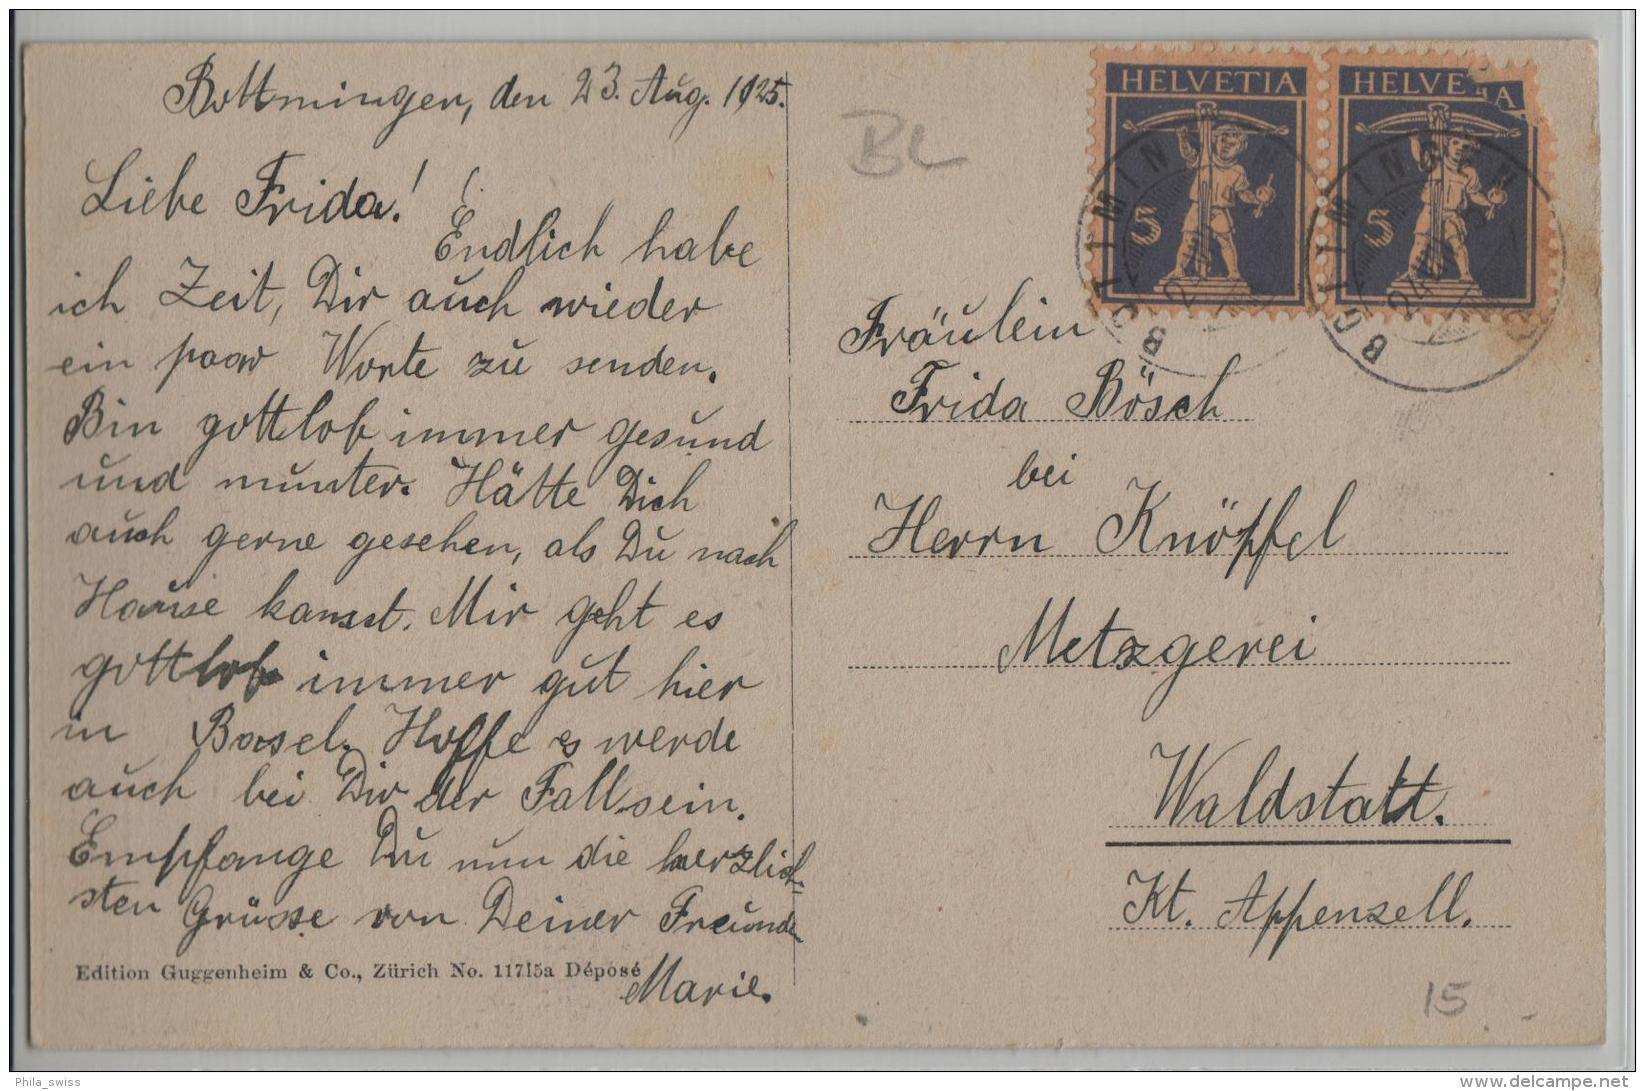 Bottmingen, den 23. Aug. 1925.
Liebe Frida!
Endlich habe
ich Zeit, Dir auch wieder
ein paar Worte zu senden.
Bin gottlob immer gesund
und munter. Hätte Dich
auch gerne gesehen, als Du nach
Hause kamst. Mir geht es
gottlob immer gut hier
in Basel. Hoffe es werde
auch bei Dir der Fall sein.
Empfange Du nun die herzlich=
sten Grüsse von Deiner Freundin
Marie.
Edition Guggenheim & Co., Zürich No. 11715a Déposé
BL
HELVETIA
5
HELVETIA
5
BOTTMINGEN
BOTTMINGEN
Fräulein
Frida Bösch
bei
Herrn Knöpfel
Metzgerei
Waldstatt.
Kt. Appenzell.
15
Phila_swiss
www.delcampe.net